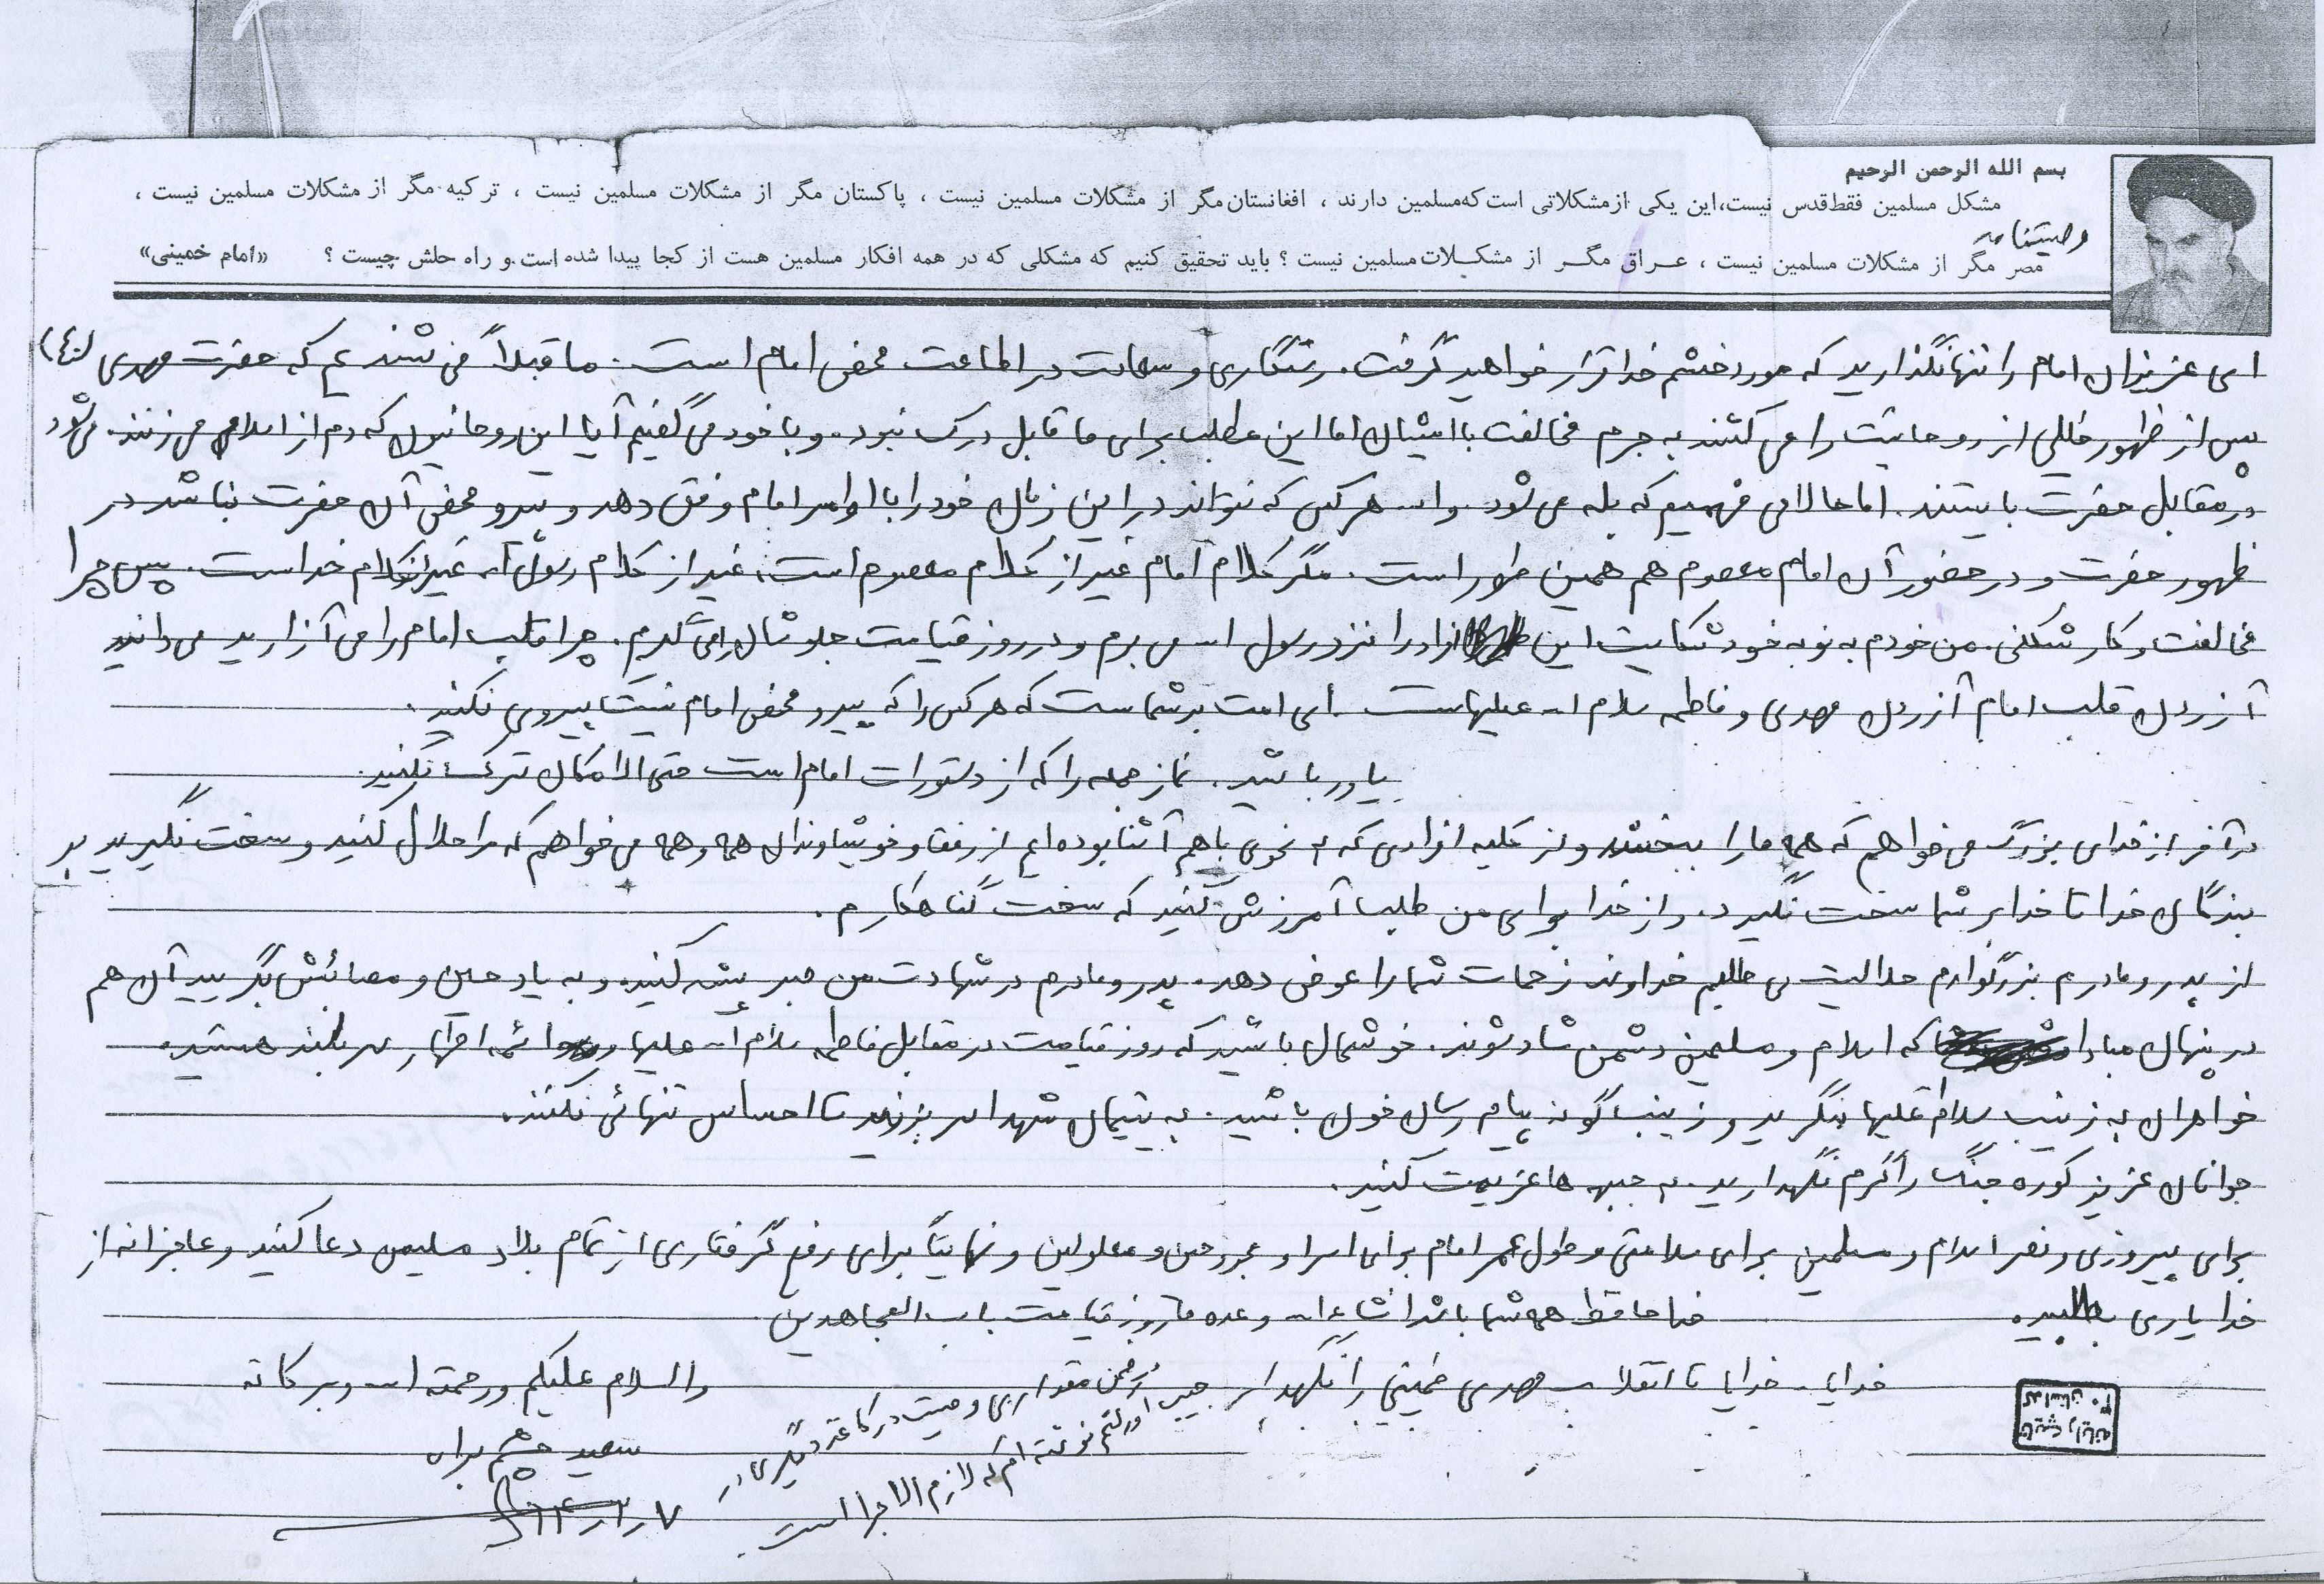 بسم الله الرحمن الرحیم
مشکل مسلمین فقط قدس نیست، این یکی از مشکلاتی است که مسلمین دارند ، افغانستان مگر از مشکلات مسلمین نیست ، پاکستان مگر از مشکلات مسلمین نیست ، ترکیه مگر از مشکلات مسلمین نیست ،
وصیتنامه
مصر مگر از مشکلات مسلمین نیست ، عراق مگر از مشکلات مسلمین نیست ؟ باید تحقیق کنیم که مشکلی که در همه افکار مسلمین هست از کجا پیدا شده است و راه حلش چیست ؟ «امام خمینی»
ای عزیزان امام را تنها نگذارید که مورد خشم خدا قرار خواهید گرفت. رستگاری و سعادت در اطاعت محض امام است. ما قبلاً می شنیدیم که حضرت مهدی (عج)
پس از ظهور خیلی از روحانیت را می کشند به جرم مخالفت با ایشان اما این مطلب برای ما قابل درک نبود. و با خود می گفتیم آیا این روحانیون که دم از اسلام می زنند. می شود
در مقابل حضرت بایستند. اما حالا می فهمیم که بله می شود. و الله هر کس که نتواند در این زمان خود را با اوامر امام وفق دهد و پیرو محض آن حضرت نباشد در
ظهور حضرت و در حضور آن امام معصوم هم همین طور است. مگر کلام امام غیر از کلام معصوم است، غیر از کلام رسول الله غیر از کلام خداست. پس چرا
مخالفت و کار شکنی. من خودم به نوبه خود شکایت این افراد را نزد رسول الله می برم و در روز قیامت جلوشان را می گیرم. چرا قلب امام را می آزارید می دانید
آزردن قلب امام آزردن مهدی و فاطمه سلام الله علیهاست. ای امت بر شماست که هر کس را که پیرو محض امام نیست پیروی نکنید.
یاور باشید. نماز جمعه را که از دستورات امام است حتی الامکان ترک نکنید.
در آخر از خدای بزرگ می خواهم که همه ما را ببخشد و از کلیه افرادی که به نحوی با هم آشنا بوده ایم از رفقا و خویشاوندان همه و همه می خواهم که مرا حلال کنید و سخت نگیرید بر
بندگان خدا تا خدا بر شما سخت نگیرد. و از خدا برای من طلب آمرزش کنید که سخت گناهکارم.
از پدر و مادرم بزرگوارم حلالیت می طلبم خداوند زحمات شما را عوض دهد. پدر و مادرم در شهادت من صبر پیشه کنید. و به یاد حسین و مصائبش بگریید آن هم
در پنهان مبادا که اسلام و مسلمین دشمن شاد شوند. خوشحال باشید که روز قیامت در مقابل فاطمه سلام الله علیها و ائمه اطهار سر بلند هستید.
خواهران به زینب سلام علیها بنگرید و زینب گونه پیام رسان خون باشید. به یتیمان شهدا سر بزنید تا احساس تنهائی نکنند.
جوانان عزیز کوره جنگ را گرم نگهدارید. به جبهه ها عزیمت کنید.
برای پیروزی و نصر اسلام و مسلمین برای سلامتی و طول عمر امام برای اسرا و مجروحین و معلولین و نهایتاً برای رفع گرفتاری از تمام بلاد مسلمین دعا کنید و عاجزانه از
خدا یاری بطلبید. خدا حافظ همه شما باشد انشاءالله وعده ما روز قیامت باب المجاهدین.
خدایا. خدایا تا انقلاب مهدی خمینی را نگهدار والسلام علیکم و رحمته الله و برکاته
در ضمن مقداری وصیت در کاغذ دیگری در
جیب اورکتم نوشته ام که لازم الاجرا است.
سعید چشم براه
۶۴/۲/۷